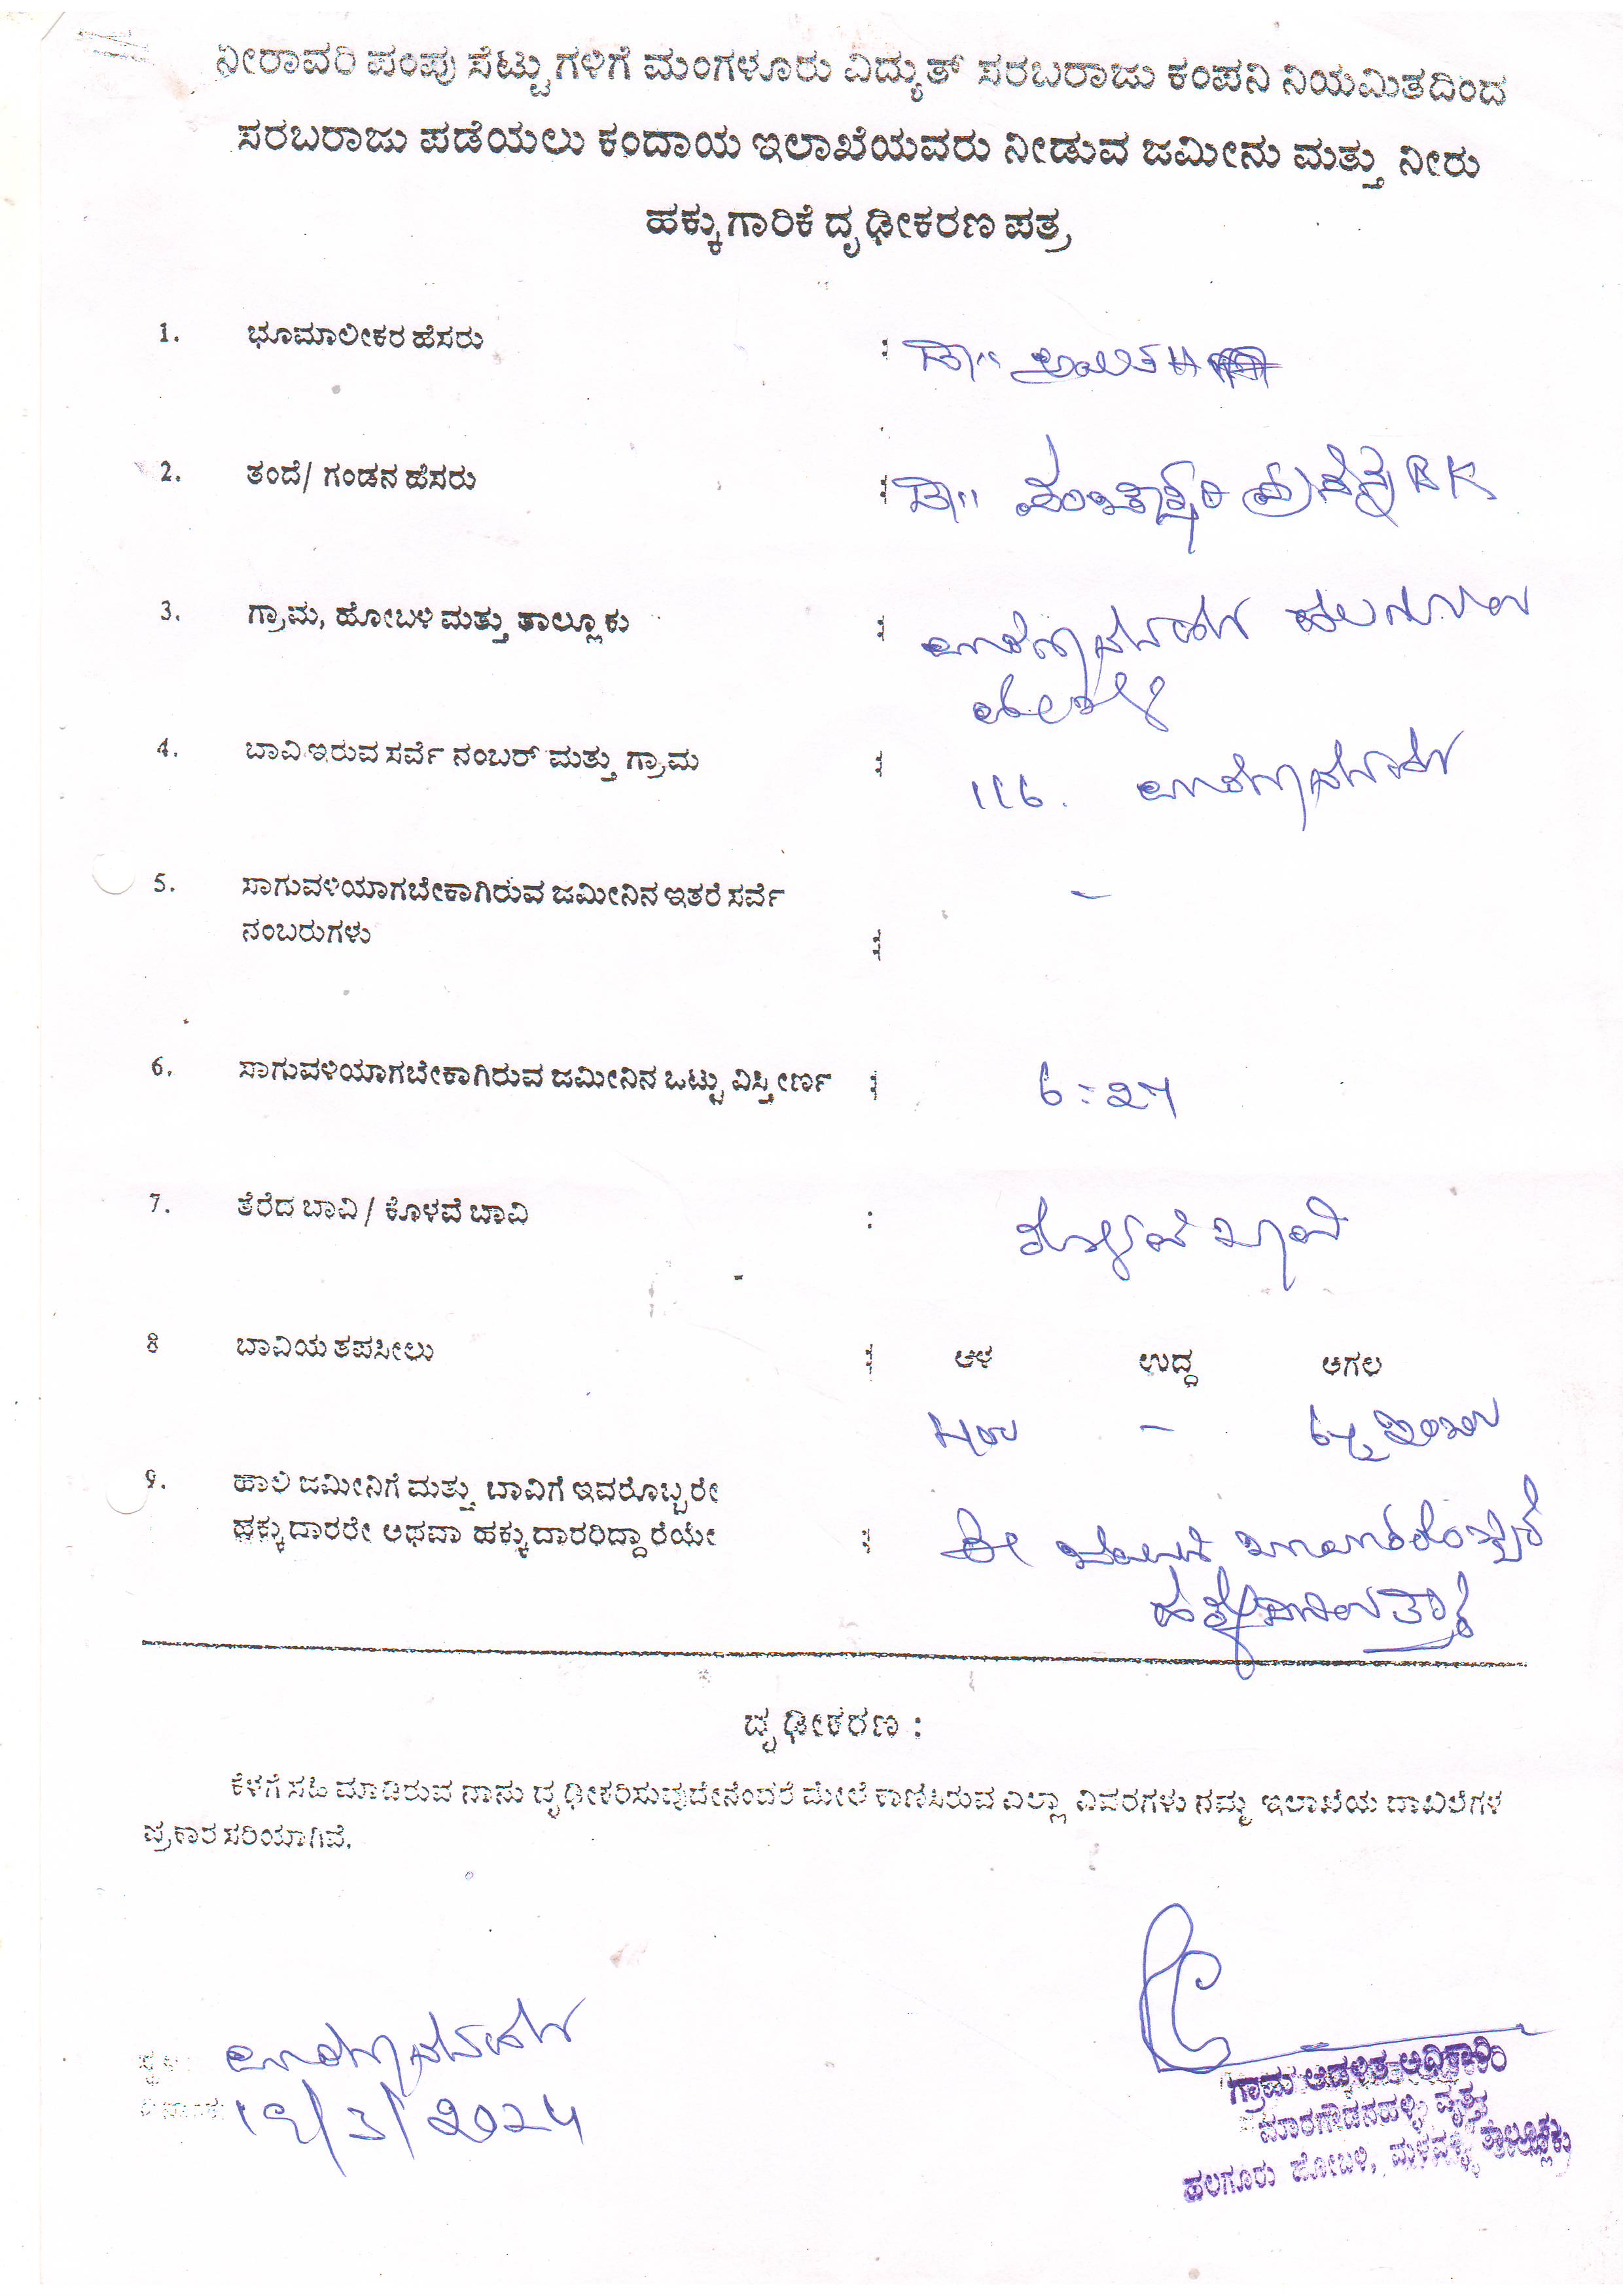 ನೀರಾವರಿ ಪಂಪು ಸೆಟ್ಟುಗಳಿಗೆ ಮಂಗಳೂರು ವಿದ್ಯುತ್ ಸರಬರಾಜು ಕಂಪನಿ ನಿಯಮಿತದಿಂದ
ಸರಬರಾಜು ಪಡೆಯಲು ಕಂದಾಯ ಇಲಾಖೆಯವರು ನೀಡುವ ಜಮೀನು ಮತ್ತು ನೀರು
ಹಕ್ಕುಗಾರಿಕೆ ದೃಢೀಕರಣ ಪತ್ರ
1. ಭೂಮಾಲೀಕರ ಹೆಸರು : ಡಾ||
2. ತಂದೆ/ ಗಂಡನ ಹೆಸರು : ಡಾ|| BK
3. ಗ್ರಾಮ, ಹೋಬಳಿ ಮತ್ತು ತಾಲ್ಲೂಕು : ಹಲಗೂರು
ಹೋಬಳಿ
4. ಬಾವಿ ಇರುವ ಸರ್ವೆ ನಂಬರ್ ಮತ್ತು ಗ್ರಾಮ : 116.
5. ಸಾಗುವಳಿಯಾಗಬೇಕಾಗಿರುವ ಜಮೀನಿನ ಇತರೆ ಸರ್ವೆ -
ನಂಬರುಗಳು :
6. ಸಾಗುವಳಿಯಾಗಬೇಕಾಗಿರುವ ಜಮೀನಿನ ಒಟ್ಟು ವಿಸ್ತೀರ್ಣ : 6=27
7. ತೆರೆದ ಬಾವಿ / ಕೊಳವೆ ಬಾವಿ : ಕೊಳವೆ ಬಾವಿ
8 ಬಾವಿಯ ತಪಸೀಲು : ಆಳ ಉದ್ದ ಅಗಲ
- 6½ ಇಂಚು
9. ಹಾಲಿ ಜಮೀನಿಗೆ ಮತ್ತು ಬಾವಿಗೆ ಇವರೊಬ್ಬರೇ
ಹಕ್ಕುದಾರರೇ ಅಥವಾ ಹಕ್ಕುದಾರರಿದ್ದಾರೆಯೇ : ಈ
ದೃಢೀಕರಣ :
ಕೆಳಗೆ ಸಹಿ ಮಾಡಿರುವ ನಾನು ದೃಢೀಕರಿಸುವುದೇನೆಂದರೆ ಮೇಲೆ ಕಾಣಿಸಿರುವ ಎಲ್ಲಾ ವಿವರಗಳು ನಮ್ಮ ಇಲಾಖೆಯ ದಾಖಲೆಗಳ
ಪ್ರಕಾರ ಸರಿಯಾಗಿವೆ.
ಸ್ಥಳ:
ದಿನಾಂಕ: 19/3/2024
ಗ್ರಾಮ ಆಡಳಿತ ಅಧಿಕಾರಿ
ಮಾರಗೌಡನಹಳ್ಳಿ ವೃತ್ತ
ಹಲಗೂರು ಹೋಬಳಿ, ಮಳವಳ್ಳಿ ತಾಲ್ಲೂಕು